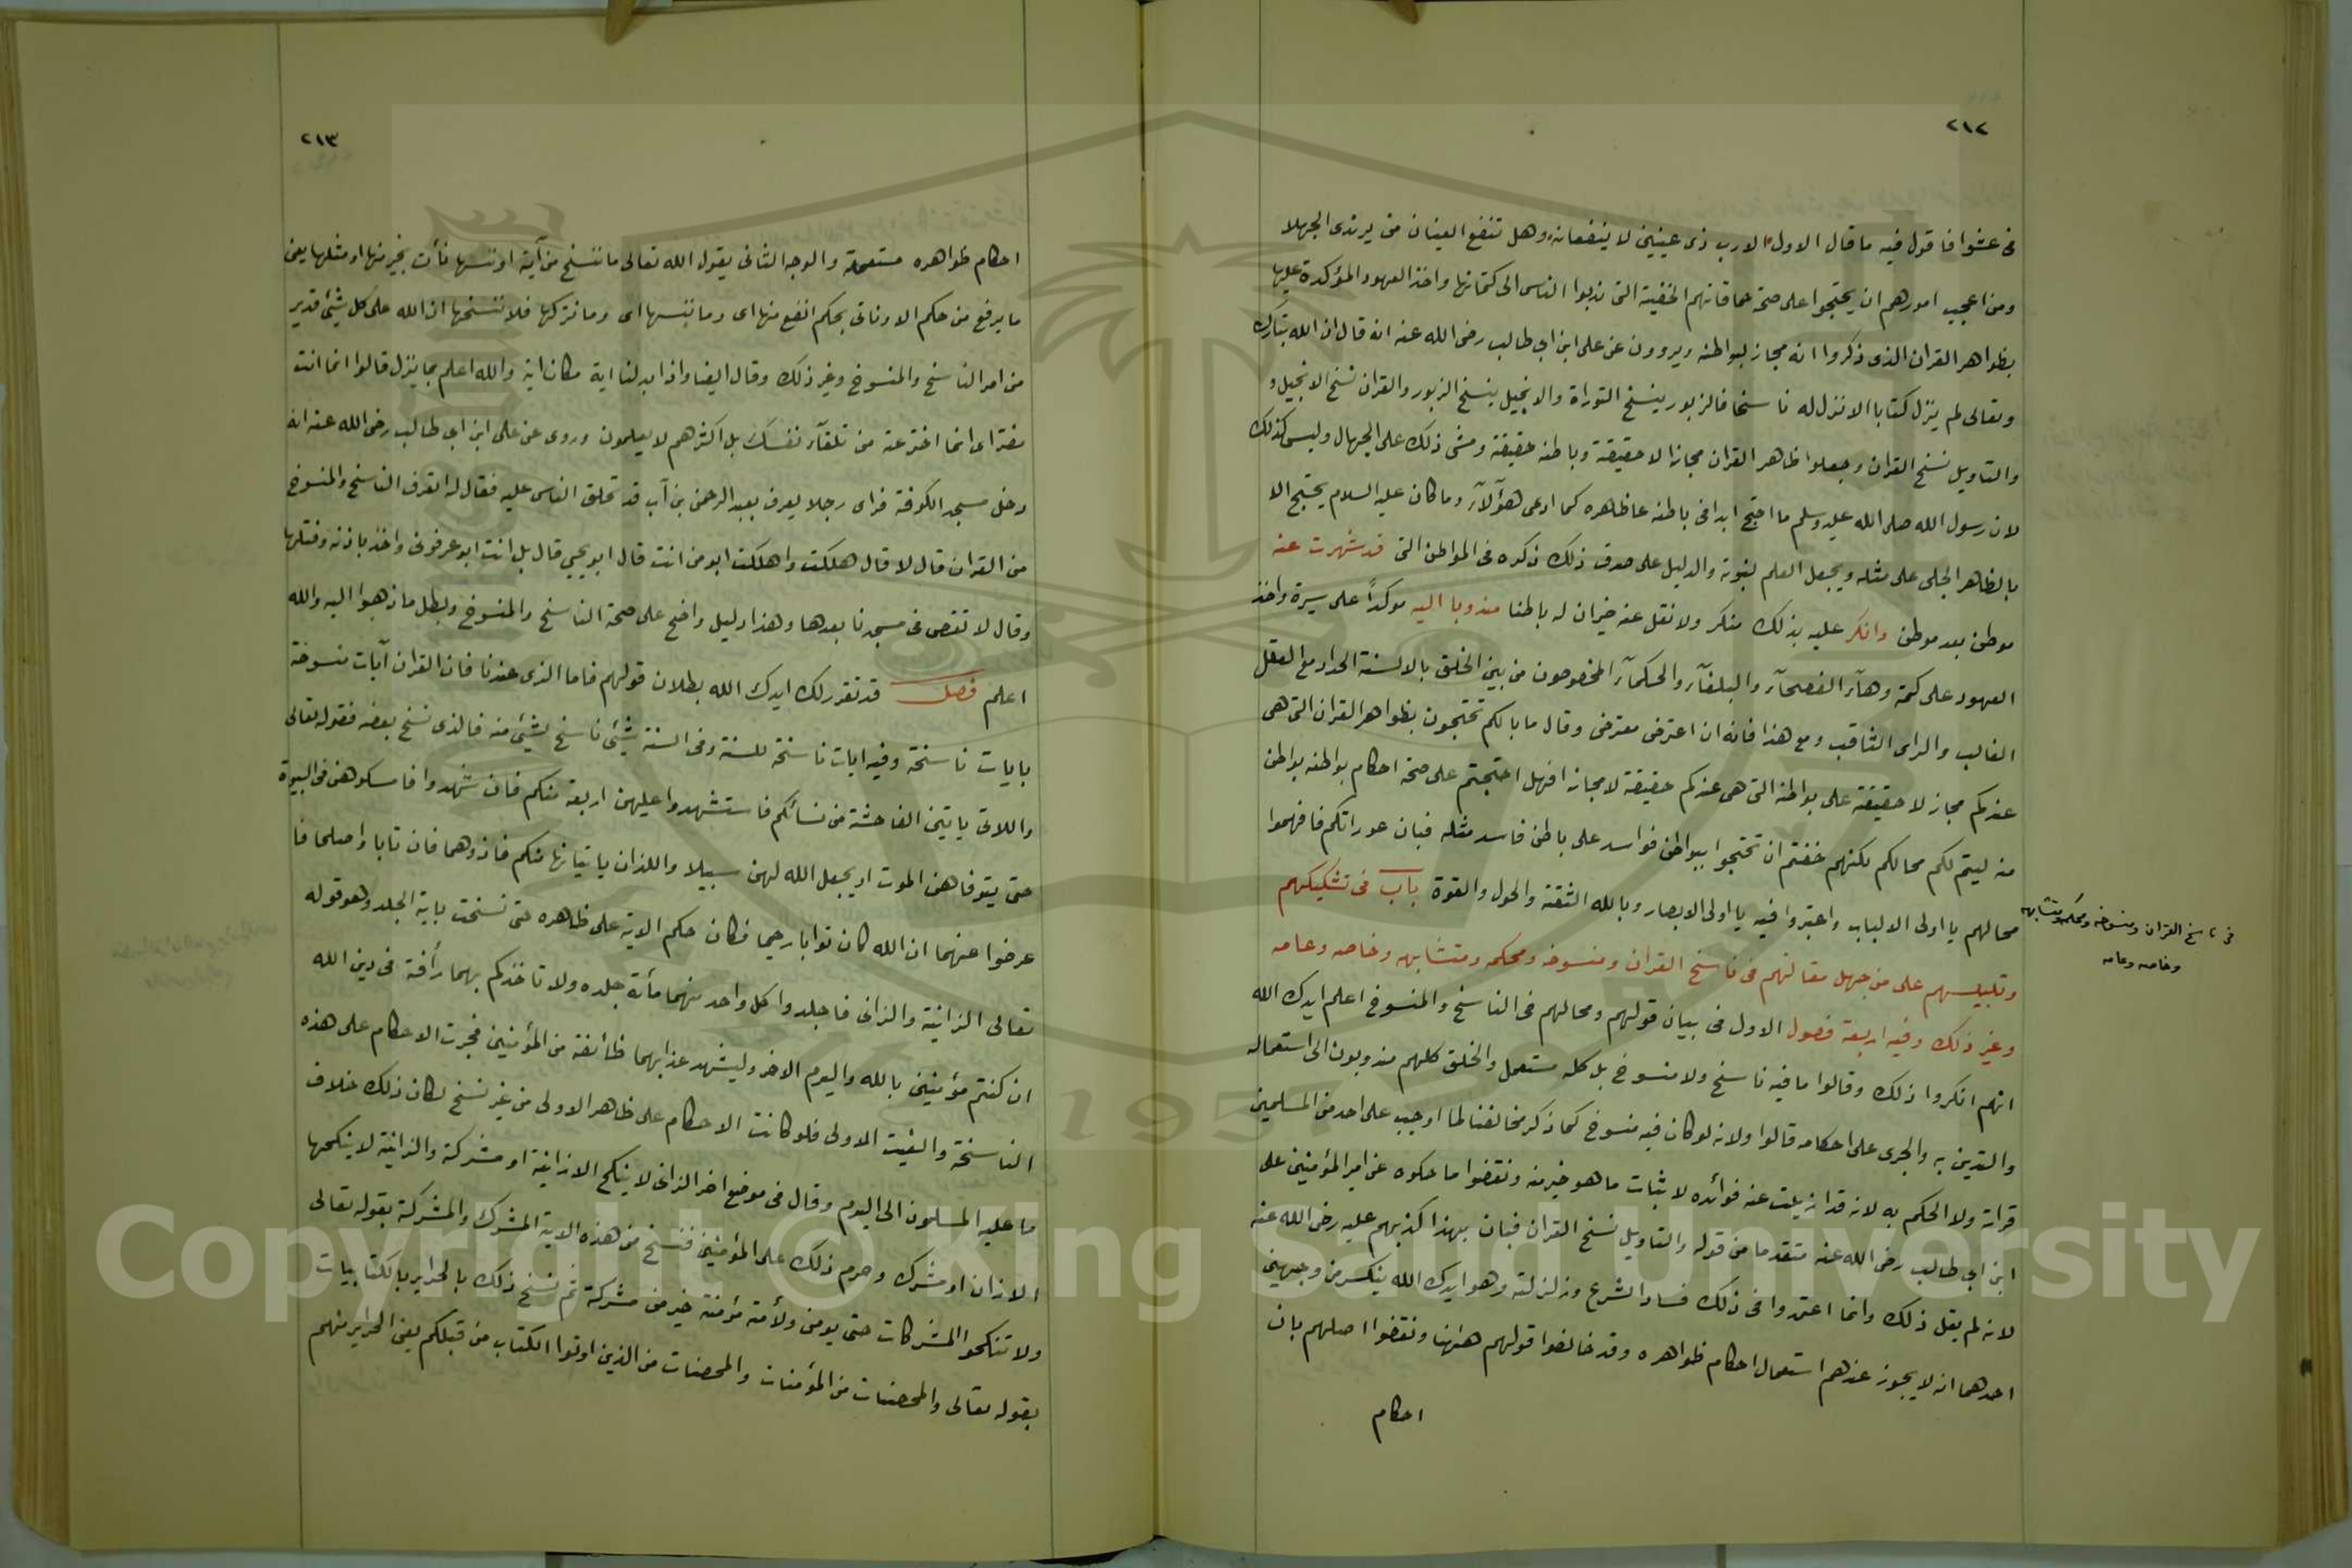 ٢١٢
فى عشوا فا قول فيه ما قال الاول الارب ذى عينين لا ينفعانه وهل تنفع العينان من يرتدى الجهلا
ومن اعجيب امورهم ان يحتجوا على صحة حماقاتهم الخفية التى ندبوا الناس الى كتمانها واخذ العهود المؤكدة عليها
بظواهر القران الذى ذكروا انه مجاز لبواطنه ويروون عن على ابن ابي طالب رضى الله عنه انه قال ان الله تبارك
وتعالى لم ينزل كتابا الا نزل له ناسخا فالزبور ينسخ التوراة والانجيل ينسخ الزبور والقران نسخ الانجيل و
والتاويل نسخ القران وجعلوا ظاهر القران مجازا لا حقيقة وباطنه حقيقة ومشى ذلك على الجهال وليس كذلك
لان رسول الله صلى الله عليه وسلم ما احتج ابدا فى باطنه عا ظاهره كما ادعى هؤلآء وما كان عليه السلام يحتج الا
بالظاهر الجلى على مثله ويجعل العلم لنبوته والدليل على صدق ذلك ذكره فى المواطن التى قد شهرت عنه
موطن بعد موطن وانكر عليه بذلك منكر ولا نقل عنه خبران له باطنا مندوبا اليه موكدًا على سيرة واخذ
العهود على كتمه وهآء الفصحآء والبلغآء والحكمآء المخصوصون من بين الخلق بالالسنة الحداد مع العقل
الغالب والراى الثاقب ومع هذا فانه ان اعترض معترض وقال ما بالكم تحتجون بظواهر القران التى هى
عندكم مجاز لا حقيقة على بواطنه التى هى عندكم حقيقة لا مجازا فهل احتججتم على صحة احكام بواطنه بواطن
منه ليتم لكم محالكم لكنهم خفتم ان تحتجوا ببواطن فواسد على باطن فاسد مثله فبان عوراتكم فافهموا
محالهم يا اولى الالباب واعتبروا فيه يا اولى الابصار وبالله الثقة والحول والقوة باب فى تشكيكهم
وتلبيسهم على من جهل مقالتهم فى ناسخ القران ومنسوخه ومحكمه ومتشابهه وخاصه وعامه
فى ناسخ القران ومنسوخه ومحكمه ومتشابهه
وخاصه وعامه
وغير ذلك وفيه اربعة فصول الاول فى بيان قولهم ومحالهم فى الناسخ والمنسوخ اعلم ايدك الله
انهم انكروا ذلك وقالوا ما فيه ناسخ ولا منسوخ بل كله مستعمل والخلق كلهم مندوبون الى استعماله
والتدين به والجرى على احكامه قالوا ولانه لو كان فيه منسوخ كما ذكر مخالفنا لما اوجب على احد من المسلمين
قراته ولا الحكم به لانه قد ازيلت عنه فوائده لاثبات ما هو خير منه ونقضوا ما حكوه عن امير المؤمنين على
ابن ابي طالب رضى الله عنه متقدما من قوله والتاويل نسخ القران فبان بهذا كذبهم عليه رضى الله عنه
لانه لم يقل ذلك وانما اعتمدوا فى ذلك فساد الشرع وزلزلته وهو ايدك الله ينكسر من وجهين
احدهما انه لا يجوز عندهم استعمال احكام ظواهره وقد خالفوا قولهم ههنا ونقضوا اصلهم بان
احكام
٢١٣
احكام ظواهره مستعملة والوجه الثانى يقول الله تعالى ما ننسخ من آية او ننسها نأت بخير منها او مثلها يعنى
ما يرفع من حكم الا وناتى بحكم انفع منها اى وما ننسها اى وما نتركها فلا ننسخها ان الله على كل شيئ قدير
من امر الناسخ والمنسوخ وغير ذلك وقال ايضا واذا بدلنا اية مكان اية والله اعلم بما ينزل قالوا انما انت
مفتر اى انما اخترعته من تلقآء نفسك بل اكثرهم لا يعلمون وروى عن على ابن ابي طالب رضى الله عنه انه
دخل مسجد الكوفة فراى رجلا يعرف بعبد الرحمن بن آب قد تحلق الناس عليه فقال له اتعرف الناسخ والمنسوخ
من القران قال لا قال هلكت واهلكت ابو من انت قال ابو يحيي قال بل انت ابو عرفونى واخذ باذنه وفتلها
وقال لا تقصى فى مسجدنا بعدها وهذا دليل واضح على صحة الناسخ والمنسوخ وبطل ما ذهبوا اليه والله
اعلم فصل قد تقرر لك ايدك الله بطلان قولهم فاما الذى عندنا فان القران آيات منسوخة
بايات ناسخة وفيه ايات ناسخة للسنة وفى السنة شيئ ناسخ لشيئ منه فالذى نسخ بعضه فقوله تعالى
واللاتى ياتين الفاحشة من نسائكم فاستشهدوا عليهن اربعة منكم فان شهدوا فامسكوهن فى البيوت
حتى يتوفاهن الموت او يجعل الله لهن سبيلا واللذان ياتيانها منكم فاذوهما فان تابا واصلحا فا
عرضوا عنهما ان الله كان توابا رحيما فكان حكم الاية على ظاهره حتى نسخت باية الجلد وهو قوله
تعالى الزانية والزانى فاجلدوا كل واحد منهما مأئة جلده ولا تاخذكم بهما رأفة فى دين الله
ان كنتم مؤمنين بالله واليوم الاخر وليشهد عذابهما طائفة من المؤمنين فجرت الاحكام على هذه
الناسخة والغيت الاولى فلو كانت الاحكام على ظاهر الاولى من غير نسخ لكان ذلك خلاف
ما عليه المسلمون الى اليوم وقال فى موضع اخر الزانى لا ينكح الا زانية او مشركة والزانية لا ينكحها
الا زان او مشرك وحرم ذلك على المؤمنين فنسخ من هذه الاية المشرك والمشركة بقوله تعالى
ولا تنكحوا المشركات حتى يومن ولأمة مؤمنة خير من مشركة ثم نسخ ذلك بالحراير بالكتابيات
بقوله تعالى والمحصنات من المؤمنات والمحصنات من الذين اوتوا الكتاب من قبلكم يعنى الحراير منهم
Copyright © King Saud University
1957